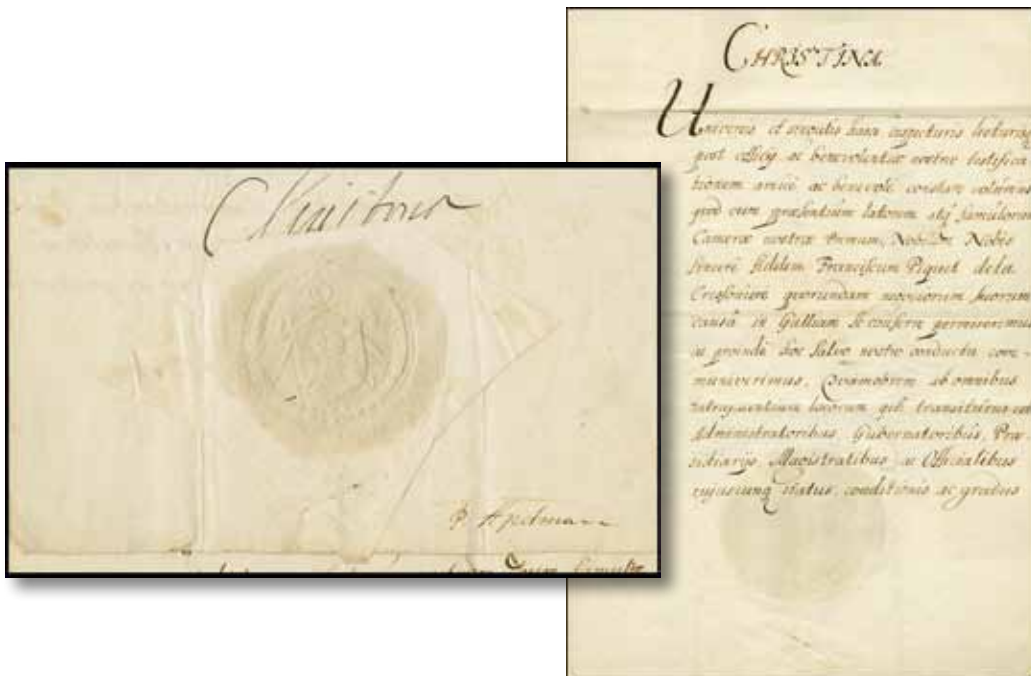 Christina
P. Apelman
CHRISTINA
Universis et singulis hasce inspecturis
post officij ac benevolentiæ nostræ testifica
tionem amicè ac benevolè constare volumus
quod cum præsentium latorem atq̃ famulorum
Cameræ nostræ Primum, Nobis
sincerè fidelem Franciscum Piquet de la
quorundam negotiorum suorum
causâ in Galliam se conferre permiserimus
ac proinde hoc Salvo nostro conductu com-
muniverimus, Quamobrem ab omnibus
locorum
Administratoribus, Gubernatoribus, Præ
sidiarijs, Magistratibus ac Officialibus
cujuscunq̃ status, conditionis ac gradus